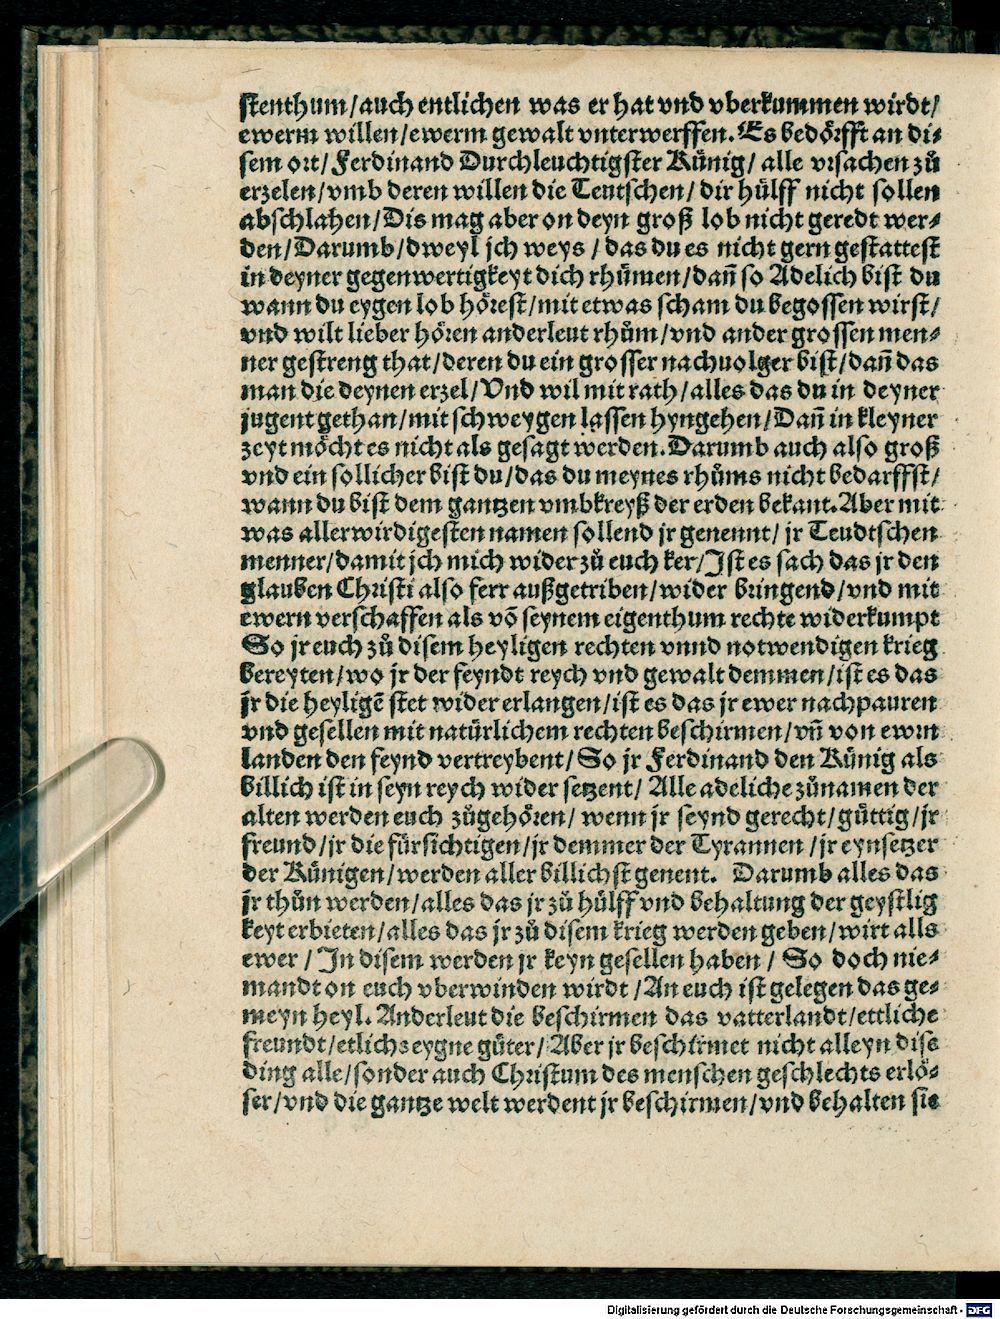 stenthum/auch entlichen was er hat vnd vberkummen wirdt/
ewerm willen/ewerm gewalt vnterwerffen. Es bedörfft an di⸗
sem ort/Ferdinand Durchleuchtigster Künig/ alle vrsachen zů
erzelen/vmb deren willen die Teutschen/ dir hülff nicht sollen
abschlahen/Dis mag aber on deyn groß lob nicht geredt wer⸗
den/Darumb/dweyl jch weys / das du es nicht gern gestattest
in deyner gegenwertigkeyt dich rhümen/dañ so Adelich bist du
wann du eygen lob hörest/mit etwas scham du begossen wirst/
vnd wilt lieber hören anderleut rhům/vnd ander grossen men⸗
ner gestreng that/deren du ein grosser nachuolger bist/dañ das
man die deynen erzel/Vnd wil mit rath/alles das du in deyner
jugent gethan/mit schweygen lassen hyngehen/Dañ in kleyner
zeyt möcht es nicht als gesagt werden. Darumb auch also groß
vnd ein sollicher bist du/das du meynes rhůms nicht bedarffst/
wann du bist dem gantzen vmbkreyß der erden bekant. Aber mit
was allerwirdigesten namen sollend jr genennt/ jr Teudtschen
menner/damit jch mich wider zů euch ker/Ist es sach das jr den
glauben Christi also ferr außgetriben/wider bringend/vnd mit
ewern verschaffen als võ seynem eigenthum rechte widerkumpt
So jr euch zů disem heyligen rechten vnnd notwendigen krieg
bereyten/wo jr der feyndt reych vnd gewalt demmen/ist es das
jr die heyligẽ stet wider erlangen/ist es das jr ewer nachpauren
vnd gesellen mit natürlichem rechten beschirmen/vñ von ewrn
landen den feynd vertreybent/So jr Ferdinand den Künig als
billich ist in seyn reych wider setzent/ Alle adeliche zůnamen der
alten werden euch zůgehören/ wenn jr seynd gerecht/güttig/jr
freund/jr die fürsichtigen/jr demmer der Tyrannen /jr eynsetzer
der Künigen/werden aller billichst genent. Darumb alles das
jr thůn werden/alles das jr zů hülff vnd behaltung der geystlig
keyt erbieten/alles das jr zů disem krieg werden geben/wirt alls
ewer / In disem werden jr keyn gesellen haben / So doch nie⸗
mandt on euch vberwinden wirdt /An euch ist gelegen das ge⸗
meyn heyl. Anderleut die beschirmen das vatterlandt/ettliche
freundt/etlich: eygne güter/ Aber jr beschirmet nicht alleyn dise
ding alle/sonder auch Christum des menschen geschlechts erlö⸗
ser/vnd die gantze welt werdent jr beschirmen/vnd behalten sie
Digitalisierung gefördert durch die Deutsche Forschungsgemeinschaft - DFG